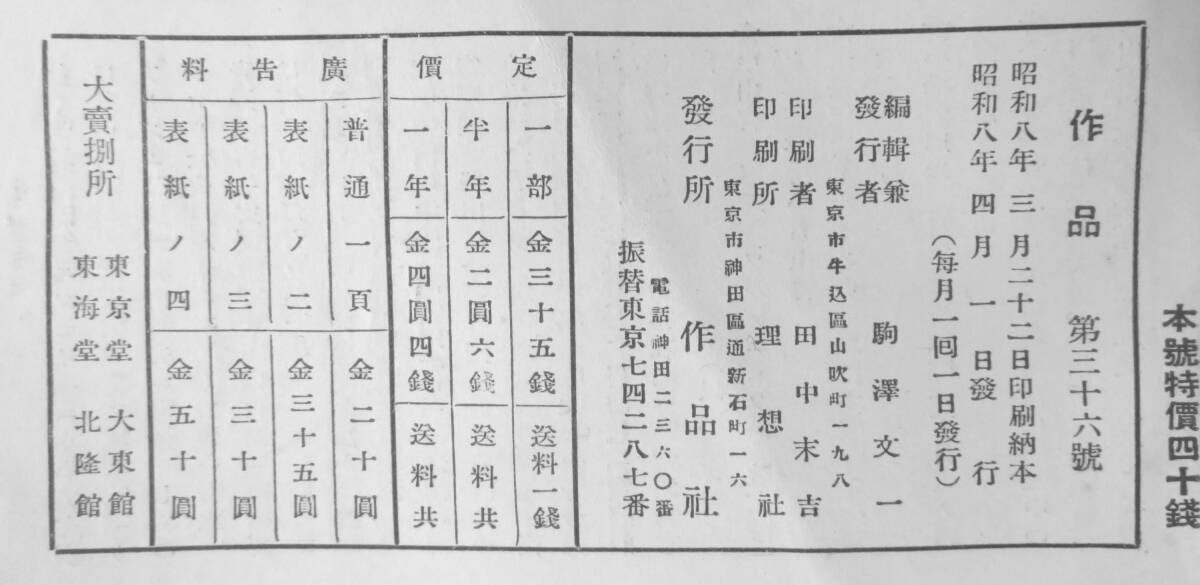 本號特價四十錢
作品 第三十六號
昭和八年 三月二十二日印刷納本
昭和八年 四月一日發行
(每月一回一日發行)
編輯兼
發行者 駒澤文一
東京市牛込區山吹町一九八
印刷者 田中末吉
印刷所 理想社
東京市神田區通新石町一六
發行所 作品社
電話神田二三六〇番
振替東京七四二八七番
定價
一部 金三十五錢 送料一錢
半年 金二圓六錢 送料共
一年 金四圓四錢 送料共
廣告料
普通一頁 金二十圓
表紙ノ二 金三十五圓
表紙ノ三 金三十圓
表紙ノ四 金五十圓
大賣捌所
東京堂 大東館
東海堂 北隆館